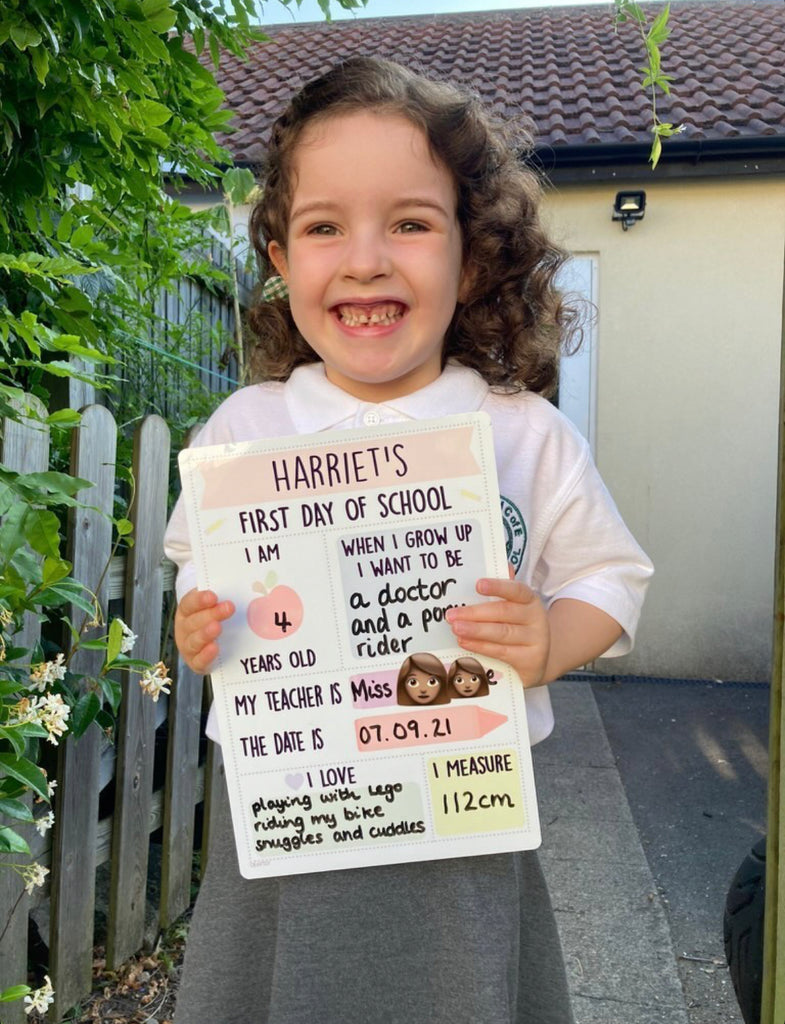 HARRIET'S
FIRST DAY OF SCHOOL
I AM
4
YEARS OLD
WHEN I GROW UP
I WANT TO BE
a doctor
and a pony
rider
MY TEACHER IS Miss
THE DATE IS 07.09.21
I LOVE
playing with Lego
riding my bike
snuggles and cuddles
I MEASURE
112cm